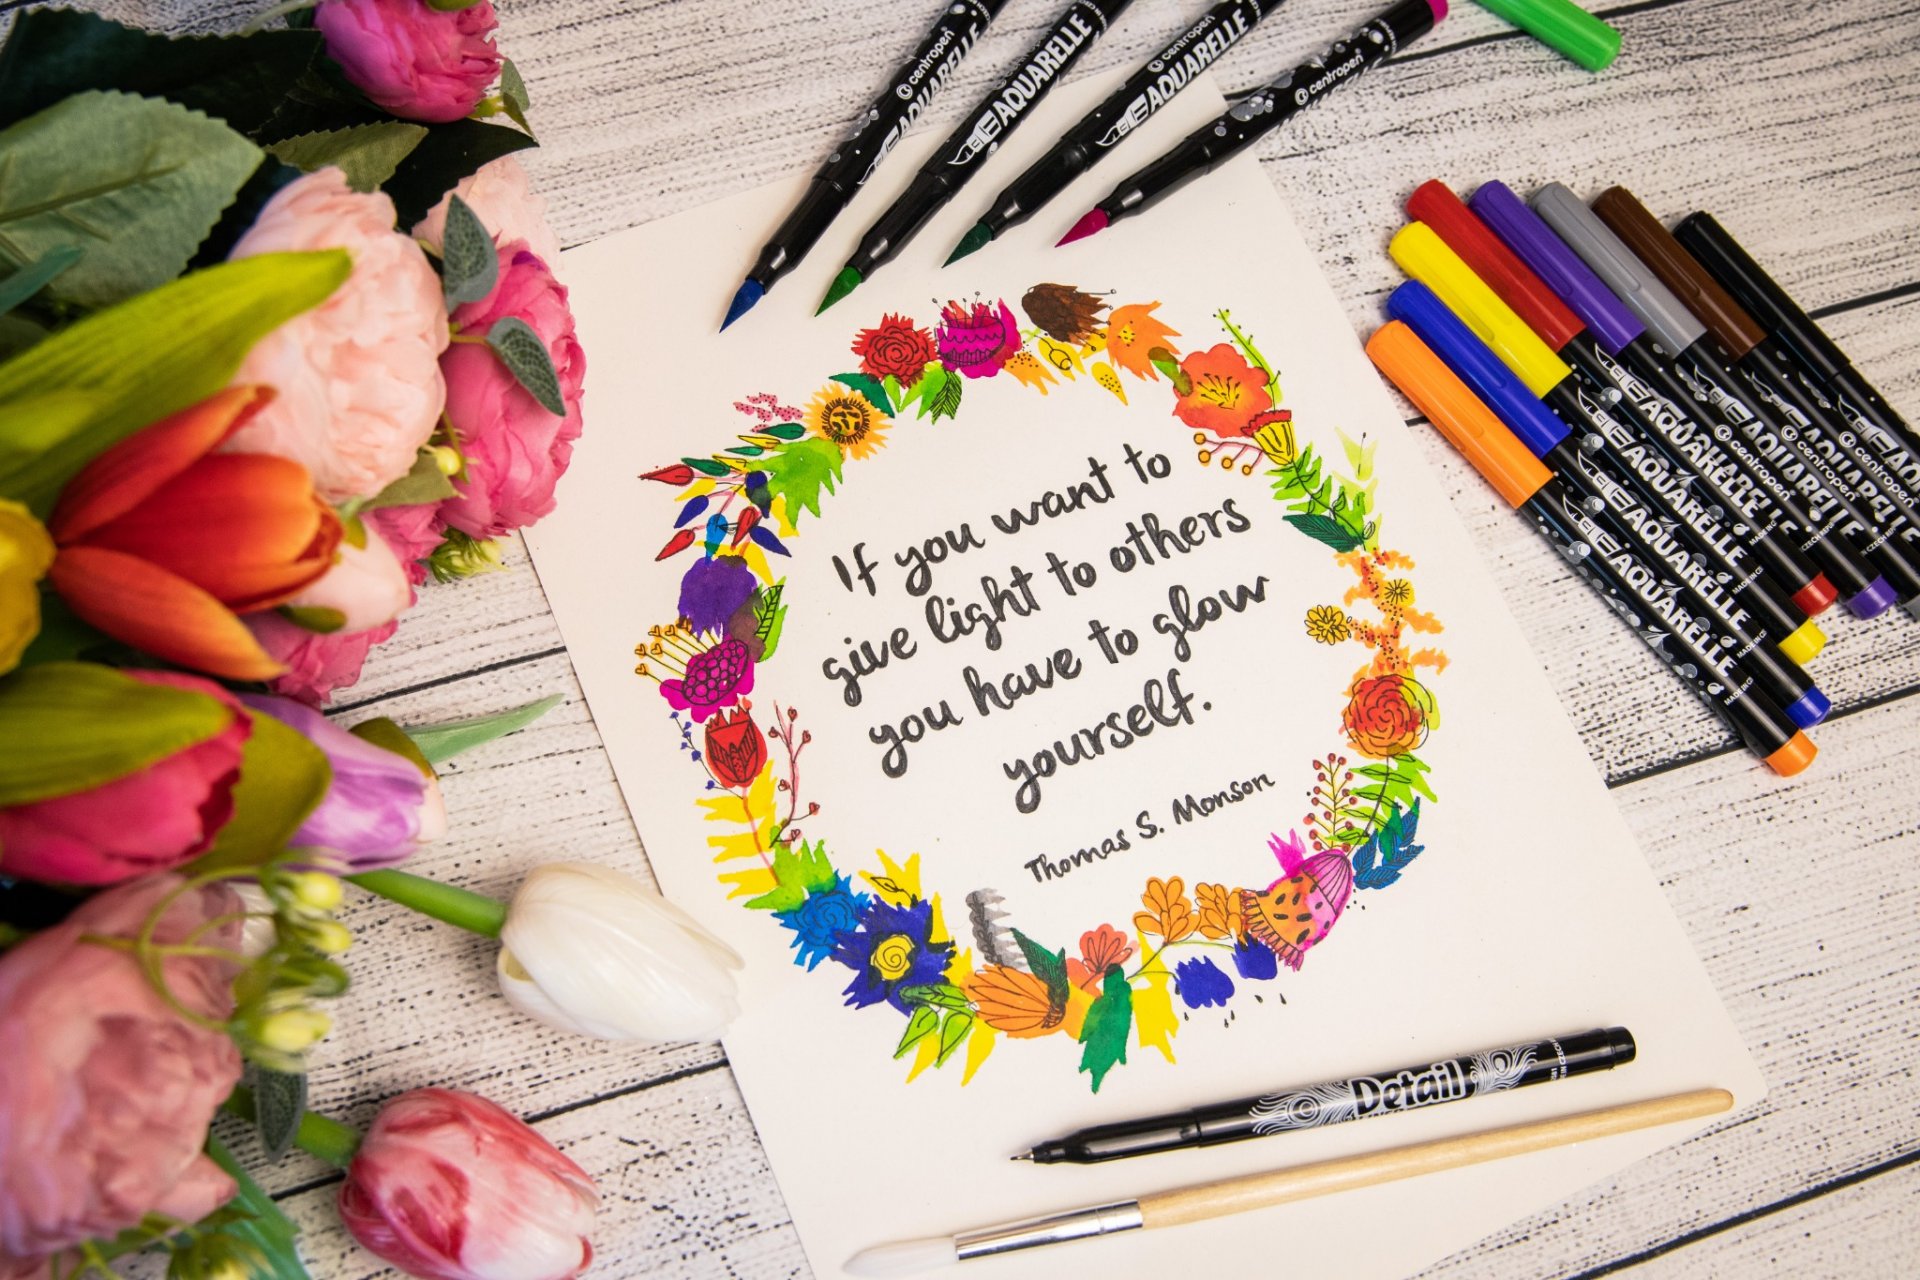 centropen
AQUARELLE
AQUARELLE
centropen
AQUARELLE
centropen
AQUARELLE
centropen
If you want to
give light to others
you have to glow
yourself.
Thomas S. Monson
AQUARELLE
MADE IN
AQUARELLE
MADE IN
AQUARELLE
centropen
AQUARELLE
centropen
AQUARELLE
Detail